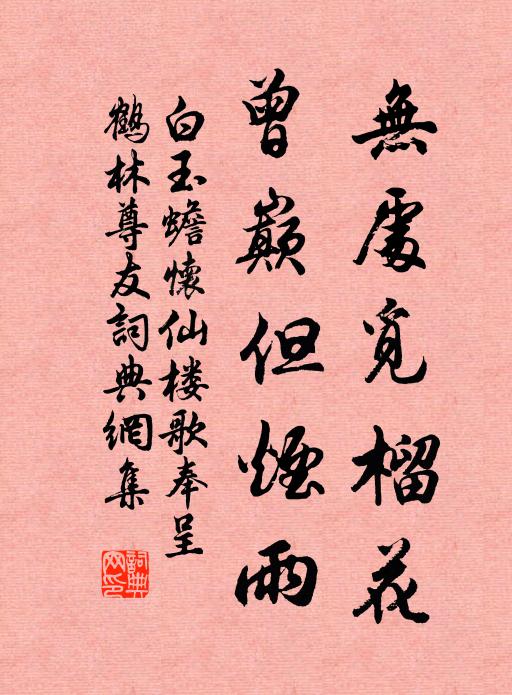 無處覓榴花
曾巔但煙雨
白玉蟾懷仙楼歌奉呈
鶴林尊友詞典網集
詞典網印